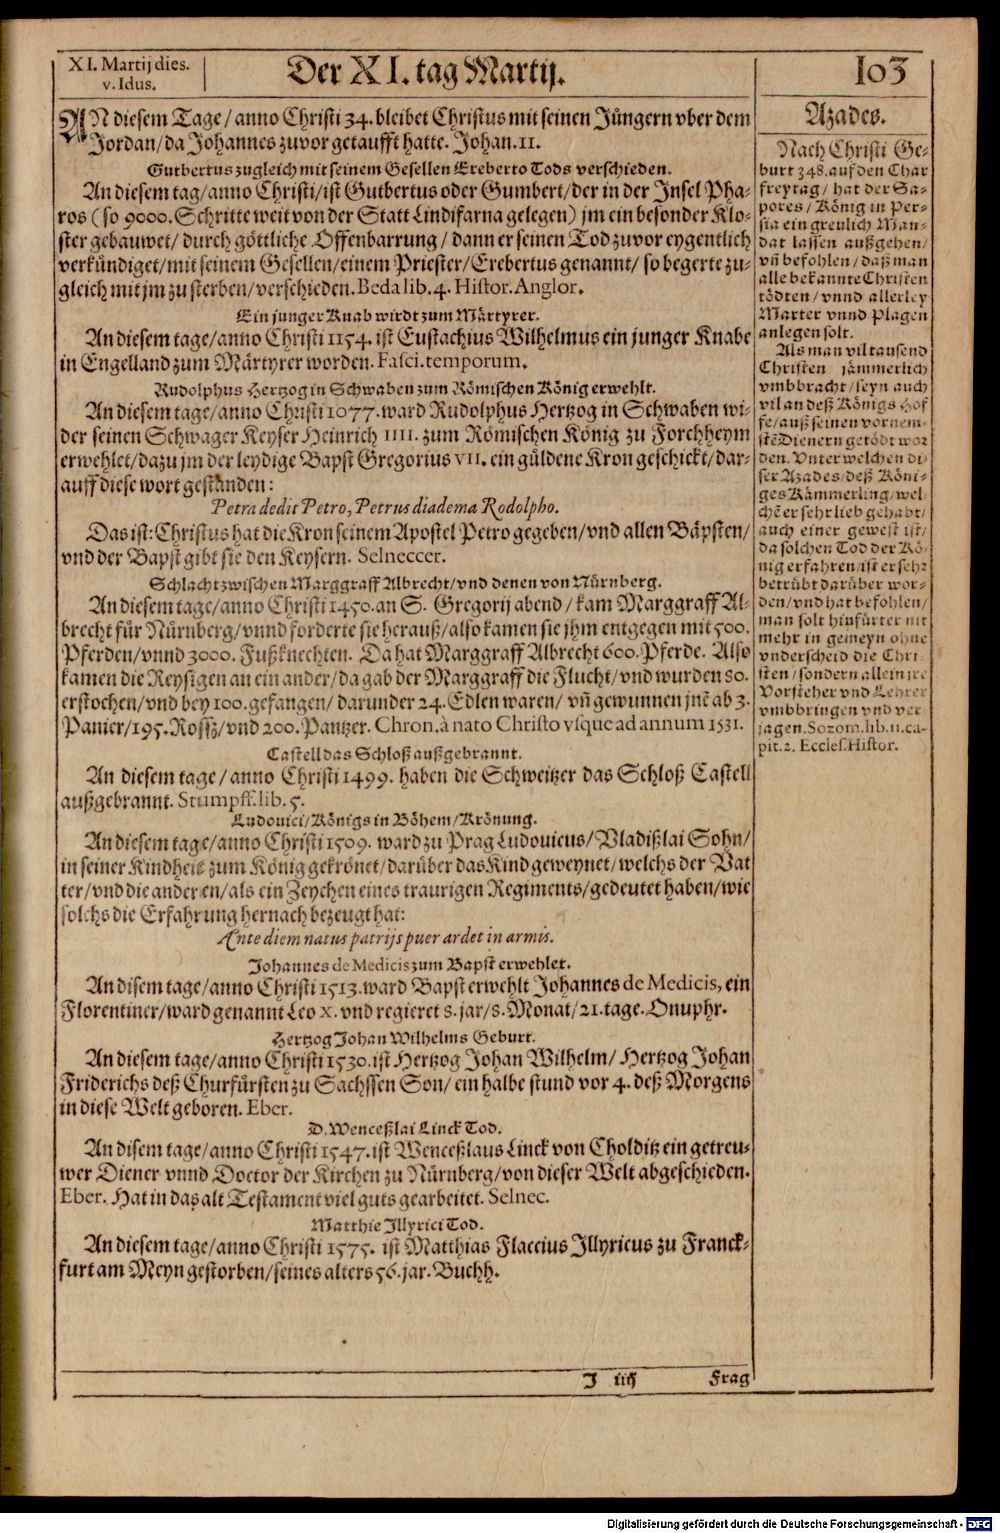 XI. Martij dies.
v. Idus.
Der XI. tag Martij.
103
AN diesem Tage/ anno Christi 34. bleibet Christus mit seinen Jüngern vber dem
Jordan/ da Johannes zuvor getaufft hatte. Johan. 11.
Gutbertus zugleich mit seinem Gesellen Ereberto Tods verschieden.
An diesem tag/ anno Christi/ ist Gutbertus oder Gumbert/ der in der Insel Pha-
ros (so 9000. Schritte weit von der Statt Lindifarna gelegen) jm ein besonder Klo-
ster gebauwet/ durch göttliche Offenbarrung/ dann er seinen Tod zuvor eygentlich
verkündiget/ mit seinem Gesellen/ einem Priester/ Erebertus genannt/ so begerte zu-
gleich mit jm zu sterben/ verschieden. Beda lib. 4. Histor. Anglor.
Ein junger Knab wirdt zum Märtyrer.
An diesem tage/ anno Christi 1154. ist Eustachius Wilhelmus ein junger Knabe
in Engelland zum Märtyrer worden. Fasci. temporum.
Rudolphus Hertzog in Schwaben zum Römischen König erwehlt.
An diesem tage/ anno Christi 1077. ward Rudolphus Hertzog in Schwaben wi-
der seinen Schwager Keyser Heinrich IIII. zum Römischen König zu Forchheym
erwehlet/ dazu jm der leydige Bapst Gregorius VII. ein güldene Kron geschickt/ dar-
auff diese wort gestanden:
Petra dedit Petro, Petrus diadema Rodolpho.
Das ist: Christus hat die Kron seinem Apostel Petro gegeben/ vnd allen Bäpsten/
vnd der Bapst gibt sie den Keysern. Selneccer.
Schlacht zwischen Marggraff Albrecht/ vnd denen von Nürnberg.
An diesem tage/ anno Christi 1450. an S. Gregorij abend/ kam Marggraff Al-
brecht für Nürnberg/ vnnd forderte sie herauß/ also kamen sie jhm entgegen mit 500.
Pferden/ vnnd 3000. Fußknechten. Da hat Marggraff Albrecht 600. Pferde. Also
kamen die Reysigen an ein ander/ da gab der Marggraff die Flucht/ vnd wurden 80.
erstochen/ vnd bey 100. gefangen/ darunder 24. Edlen waren/ vñ gewunnen jnẽ ab 3.
Panier/ 195. Rossz/ vnd 200. Pantzer. Chron. à nato Christo vsque ad annum 1531.
Castell das Schloß außgebrannt.
An diesem tage/ anno Christi 1499. haben die Schweitzer das Schloß Castell
außgebrannt. Stumpff. lib. 5.
Ludouici/ Königs in Böhem/ Krönung.
An diesem tage/ anno Christi 1509. ward zu Prag Ludouicus/ Vladißlai Sohn/
in seiner Kindheit zum König gekrönet/ darüber das Kind geweynet/ welchs der Vat
ter/ vnd die anderen/ als ein Zeychen eines traurigen Regiments/ gedeutet haben/ wie
solchs die Erfahrung hernach bezeugt hat:
Ante diem natus patrijs puer ardet in armis.
Johannes de Medicis zum Bapst erwehlet.
An disem tage/ anno Christi 1513. ward Bapst erwehlt Johannes de Medicis, ein
Florentiner/ ward genannt Leo X. vnd regieret 8. jar/ 8. Monat/ 21. tage. Onuphr.
Hertzog Johan Wilhelms Geburt.
An diesem tage/ anno Christi 1530. ist Hertzog Johan Wilhelm/ Hertzog Johan
Friderichs deß Churfürsten zu Sachssen Son/ ein halbe stund vor 4. deß Morgens
in diese Welt geboren. Eber.
D. Wenceßlai Linck Tod.
An disem tage/ anno Christi 1547. ist Wenceßlaus Linck von Cholditz ein getreu-
wer Diener vnnd Doctor der Kirchen zu Nürnberg/ von dieser Welt abgeschieden.
Eber. Hat in das alt Testament viel guts gearbeitet. Selnec.
Matthie Illyrici Tod.
An diesem tage/ anno Christi 1575. ist Matthias Flaccius Illyricus zu Franck-
furt am Meyn gestorben/ seines alters 56. jar. Buchh.
J iiij
Frag
Azades.
Nach Christi Ge-
burt 348. auf den Char
freytag/ hat der Sa-
pores/ König in Per-
sia ein greulich Man-
dat lassen außgehen/
vñ befohlen/ daß man
alle bekannte Christen
tödten/ vnnd allerley
Marter vnnd Plagen
anlegen solt.
Als man vil tausend
Christen jämmerlich
vmbbracht/ seyn auch
vil an deß Königs Hof
fe/ auß seinen vornem-
stẽ Dienern getödt wor
den. Vnter welchen di-
ser Azades/ deß Köni-
ges Kämmerling/ wel-
chẽ er sehr lieb gehabt/
auch einer gewest ist/
da solchen Tod der Kö-
nig erfahren/ ist er sehr
betrübt darüber wor-
den/ vnd hat befohlen/
man solt hinfürter nit
mehr in gemeyn ohne
vnderscheid die Chri-
sten/ sondern allein jre
Vorsteher vnd Lehrer
vmbbringen vnd ver-
jagen. Sozom. lib. 11. ca-
pit. 2. Eccles. Histor.
Digitalisierung gefördert durch die Deutsche Forschungsgemeinschaft - DFG